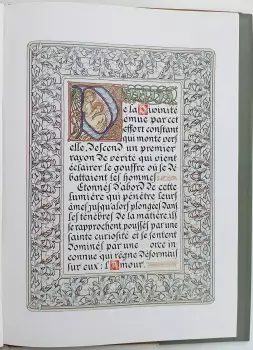 De la Divinité
émue par cet
effort constant
qui monte vers
elle, Descend un premier
rayon de vérité qui vient
éclairer le gouffre où se dé
battaient les hommes
Etonnés d'abord de cette
lumière qui pénètre leurs
âmes jusqu'alors plongées dans
les ténèbres de la matière, ils
se rapprochent, poussés par une
sainte curiosité et se sentent
dominés par une orce in
connue qui règne désormais
sur eux : l'Amour